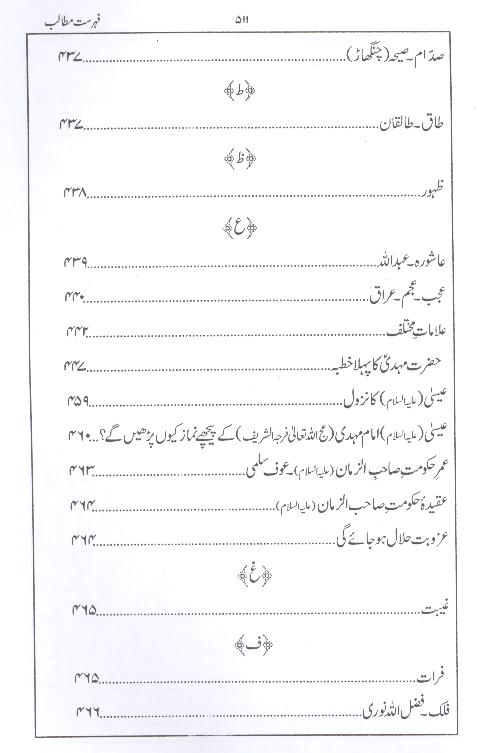 فہرست مطالب ۵۱۱
صدّام۔صیحہ(چنگھاڑ)........۴۳۷
﴿ط﴾
طاق۔طالقان........۴۳۷
﴿ظ﴾
ظہور........۴۳۸
﴿ع﴾
عاشورہ۔عبداللہ........۴۳۹
عجب۔عجم۔عراق........۴۴۰
علاماتِ مختلف........۴۴۲
حضرت مہدیؑ کا پہلا خطبہ........۴۴۷
عیسیٰ (علیہ السلام) کا نزول........۴۵۹
عیسیٰ (علیہ السلام) امام مہدی (عج اللہ تعالیٰ فرجہ الشریف) کے پیچھے نماز کیوں پڑھیں گے؟...۴۶۰
عمرِ حکومتِ صاحب الزمان (علیہ السلام)۔عوف سلمی........۴۶۳
عقیدۂ حکومتِ صاحب الزمان (علیہ السلام)........۴۶۴
عزوبت حلال ہو جائے گی........۴۶۴
﴿غ﴾
غیبت........۴۶۵
﴿ف﴾
فرات........۴۶۵
فلک۔فضل اللہ نوری........۴۶۶